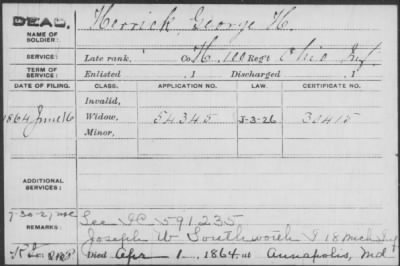 DEAD.
NAME OF SOLDIER: Herrick, George H.
SERVICE: Late rank, Co. H, 100 Reg't Ohio Inf.
TERM OF SERVICE: Enlisted , 1 Discharged , 1
DATE OF FILING. CLASS. APPLICATION NO. LAW. CERTIFICATE NO.
Invalid,
1864 June 16 Widow, 54345 J-3-26 30415
Minor,
ADDITIONAL SERVICES:
7-30-27
See IC 591235
REMARKS: Joseph W Southworth I 18 Mich Inf
Died Apr 1, 1864, at Annapolis, Md